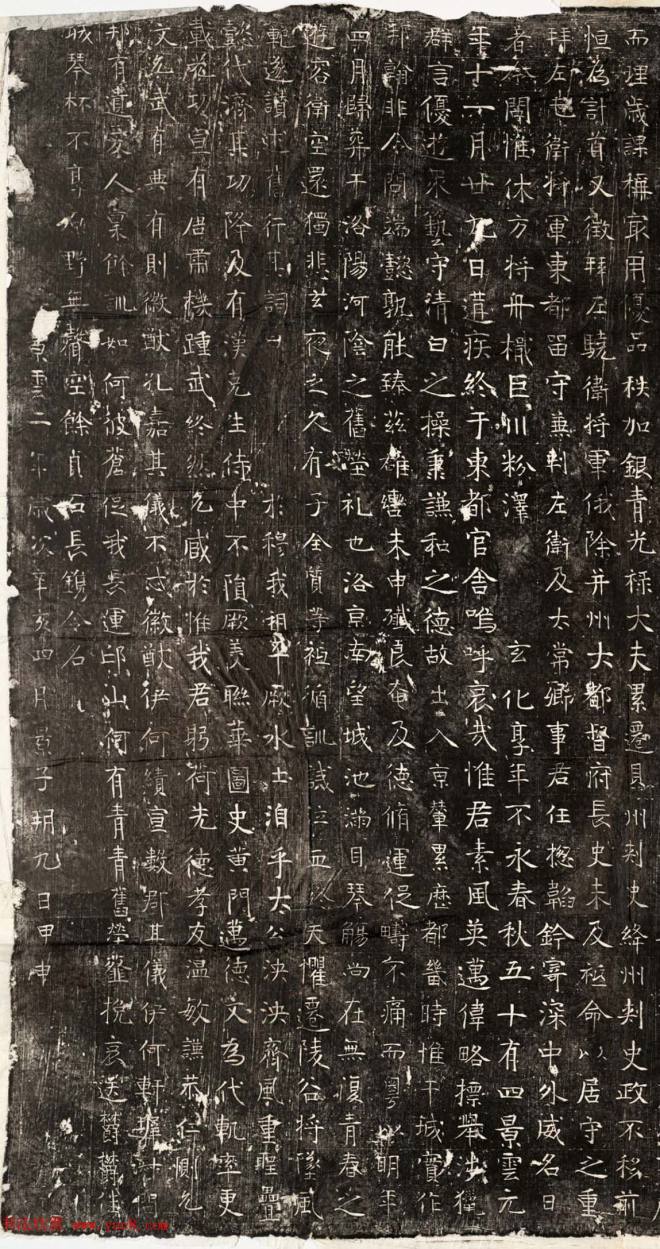 而理歲課稱最用優品秩加銀青光祿大夫累遷貝州刾史絳州刾史政不移前
恒為計首又徵拜左驍衛將軍俄除并州大都督府長史未及祗命以居守之重
拜左屯衛將軍東都留守兼判左衛及太常卿事君任揔韜鈐寄深中外威名日
者 闕惟休方將舟檝巨川粉澤 玄化享年不永春秋五十有四景雲元
年十一月廿九日遘疾終于東都官舍嗚呼哀哉惟君素風英邁偉略標舉涉獵
群言優遊眾藝守清白之操秉謙和之德故出入京輦累歷都畿時惟干城實作
邦 論非令問端懿孰能臻茲雄 未申殲良奄及德脩運促疇不痛而粵以明年
四月歸葬于洛陽河陰之舊塋礼也洛京南望城池滿目琴觴尚在無復青春之
遊容衛空還獨悲玄夜之久有子全質等祗循訓誡 血 天懼遷陵谷將墜風
範遂讚 舊行其詞曰 於穆我祖平厥水土洎乎太公泱泱齊風重聖疊
懿代濟其功降及有漢克生侍中不隕厥美聯華圖史黃門邁德文為代軌率更
載 功臭有居肅機踵武終然允臧於惟我君躬荷先德孝友溫敏謙恭仁惻允
文允武有典有則徽猷孔嘉其儀不忒徽猷伊何績宣數郡其儀伊何軒墀 門
邦有遺 人稟餘訓如何彼蒼促我長運邙山何有青青舊塋 挽哀送鬱鬱佳
城琴杯不享 野無聲空餘貞石長鐫令名
景雲二年歲次辛亥四月景子朔九日甲申
書法欣賞 www.yac8.com